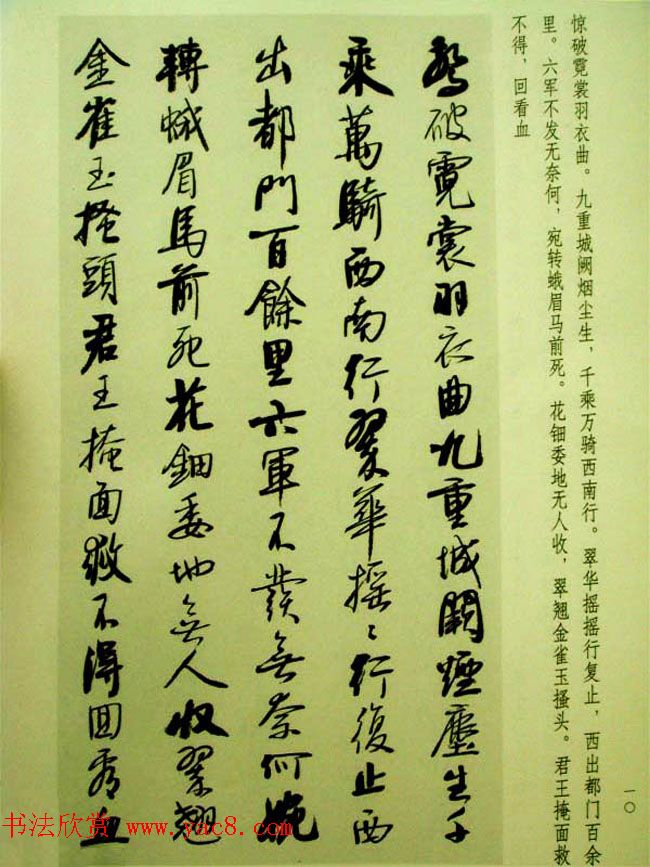 惊破霓裳羽衣曲。九重城阙烟尘生，千乘万骑西南行。翠华摇摇行复止，西出都门百余
里。六军不发无奈何，宛转蛾眉马前死。花钿委地无人收，翠翘金雀玉搔头。君王掩面救
不得，回看血
一〇
驚破霓裳羽衣曲九重城闕煙塵生千
乘萬騎西南行翠華摇〻行復止西
出都門百餘里六軍不發無奈何宛
轉蛾眉馬前死花鈿委地無人收翠翹
金雀玉搔頭君王掩面救不得回看血
书法欣赏 www.yac8.com